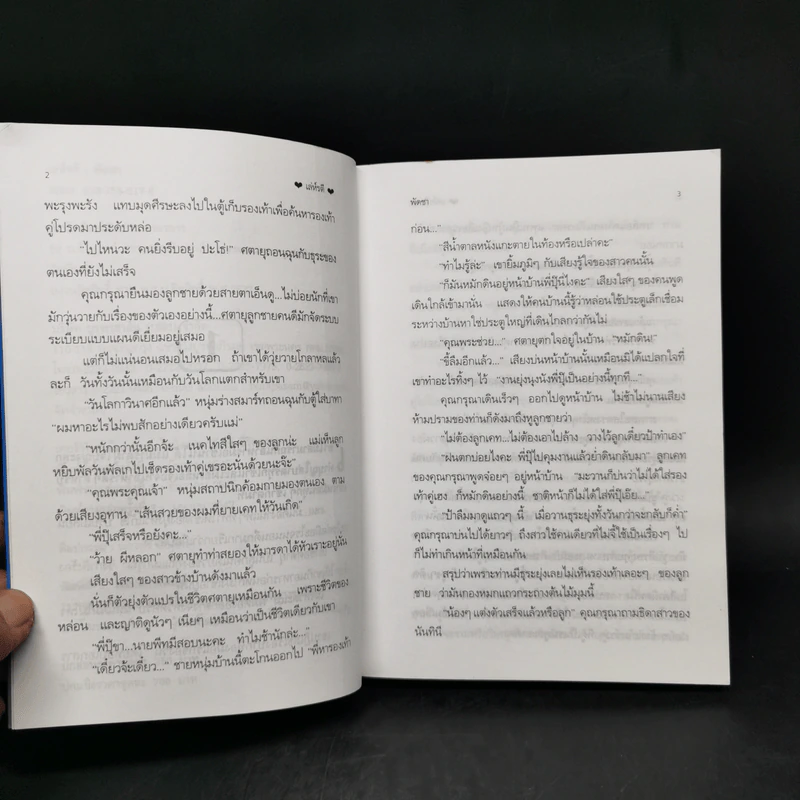 2
❤ เล่ห์รตี ❤
พะรุงพะรัง แทบมุดศีรษะลงไปในตู้เก็บรองเท้าเพื่อค้นหารองเท้า
คู่โปรดมาประดับหล่อ
"ไปไหนวะ คนยิ่งรีบอยู่ ปะโธ่!" ศตายุถอนฉุนกับธุระของ
ตนเองที่ยังไม่เสร็จ
คุณกรุณายืนมองลูกชายด้วยสายตาเอ็นดู...ไม่บ่อยนักที่เขา
มักวุ่นวายกับเรื่องของตัวเองอย่างนี้...ศตายุลูกชายคนดีมักจัดระบบ
ระเบียบแบบแผนดีเยี่ยมอยู่เสมอ
แต่ก็ไม่แน่นอนเสมอไปหรอก ถ้าเขาได้วุ่นวายโกลาหลแล้ว
ละก็ วันทั้งวันนั้นเหมือนกับวันโลกแตกสำหรับเขา
"วันโลกาวินาศอีกแล้ว" หนุ่มร่างสมาร์ทถอนฉุนกับตู้ใส่บาทา
"ผมหาอะไรไม่พบสักอย่างเดียวครับแม่"
"หนักกว่านั้นอีกจ้ะ เนคไทสีใสๆ ของลูกน่ะ แม่เห็นลูก
หยิบพัลวันพัลเกไปเช็ดรองเท้าคู่เขรอะนั่นด้วยนะจ๊ะ"
"คุณพระคุณเจ้า" หนุ่มสถาปนิกค้อมกายมองตนเอง ตาม
ด้วยเสียงอุทาน "เส้นสวยของผมที่ยายเคทให้วันเกิด"
"พี่ปุ๊เสร็จหรือยังคะ..."
"ว้าย ผีหลอก" ศตายุทำท่าสยองให้มารดาได้หัวเราะอยู่นั่น
เสียงใสๆ ของสาวข้างบ้านดังมาแล้ว
นั่นก็ตัวยุ่งตัวแปรในชีวิตศตายุเหมือนกัน เพราะชีวิตของ
หล่อน และญาติดูนัวๆ เนียๆ เหมือนว่าเป็นชีวิตเดียวกับเขา
"พี่ปุ๊ขา...นายพีทมีสอบนะคะ ทำไมช้านักล่ะ..."
"เดี๋ยวจ้ะเดี๋ยว..." ชายหนุ่มบ้านนี้ตะโกนออกไป "พี่หารองเท้า
พัดชา
3
ก่อน..."
"สีน้ำตาลหนังแกะตายในท้องหรือเปล่าคะ"
"ทำไมรู้ล่ะ" เขายิ้มภูมิๆ กับเสียงรู้ใจของสาวคนนั้น
"ก็มันหมักดินอยู่หน้าบ้านพี่ปุ๊นี่ไงคะ" เสียงใสๆ ของคนพูด
เดินใกล้เข้ามานั่น แสดงให้คนบ้านนี้รู้ว่าหล่อนใช้ประตูเล็กเชื่อม
ระหว่างบ้านหาใช่ประตูใหญ่ที่เดินไกลกว่ากันไม่
"คุณพระช่วย..." ศตายุตกใจอยู่ในบ้าน "หมักดิน!"
"ขี้ลืมอีกแล้ว..." เสียงบ่นหน้าบ้านนั้นเหมือนมิได้แปลกใจที่
เขาทำอะไรทิ้งๆ ไว้ "งานยุ่งนุงนังพี่ปุ๊เป็นอย่างนี้ทุกที..."
คุณกรุณาเดินเร็วๆ ออกไปดูหน้าบ้าน ไม่ช้าไม่นานเสียง
ห้ามปรามของท่านก็ดังมาถึงหูลูกชายว่า
"ไม่ต้องลูกเคท...ไม่ต้องเอาไปล้าง วางไว้ลูกเดี๋ยวป้าทำเอง"
"ฝนตกบ่อยไงคะ พี่ปุ๊ไปคุมงานแล้วย่ำดินกลับมา" ลูกเคท
ของคุณกรุณาพูดจ๋อยๆ อยู่หน้าบ้าน "มะวานก็บ่นว่าไม่ได้ใส่รอง
เท้าคู่เฮง ก็หมักดินอย่างนี้ ชาติหน้าก็ไม่ได้ใส่พี่ปุ๊เอ๊ย..."
"ป้าลืมมาดูแถวๆ นี้ เมื่อวานธุระยุ่งทั้งวันกว่าจะกลับก็ค่ำ"
คุณกรุณาบ่นไปได้ยาวๆ ถึงสาวใช้คนเดียวที่ไม่จี้ใช้เป็นเรื่องๆ ไป
ก็ไม่ทำเกินหน้าที่เหมือนกัน
สรุปว่าเพราะท่านมีธุระยุ่งเลยไม่เห็นรองเท้าเลอะๆ ของลูก
ชาย ว่ามันกองหมกแถวกระถางต้นไม้มุมนี้
"น้องๆ แต่งตัวเสร็จแล้วหรือลูก" คุณกรุณาถามธิดาสาวของ
นันทินี